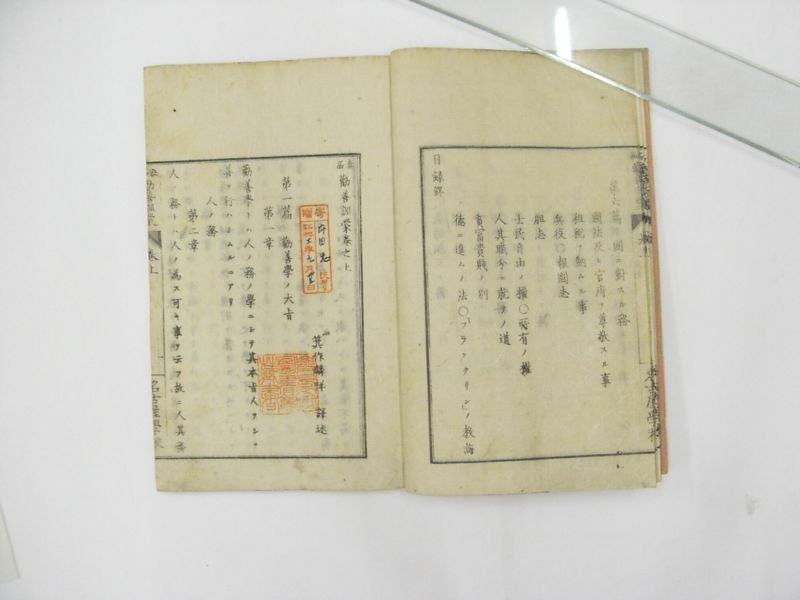 第六篇 國ニ對スル務
國法及ヒ官府ヲ尊敬スル事
租税ヲ納ムル事
兵役〇報國志
胆志
士民自由ノ權〇所有ノ權
人其職分ニ就テノ道
貧富貴賤ノ別
徳ニ進ムノ法〇フランクリンノ教誨
目録終
勸善訓蒙巻之上
箕作麟祥 譯述
第一篇 勸善學ノ大旨
第一章
勸善學トハ人ノ務ノ學ニシテ其本旨人ヲシテ
善ヲ行ハシムルニアリ
人ノ務
第二章
人ノ務トハ人ノ爲ス可キ事ヲ云フ故ニ人其務
巻上
名古屋學校
寄贈